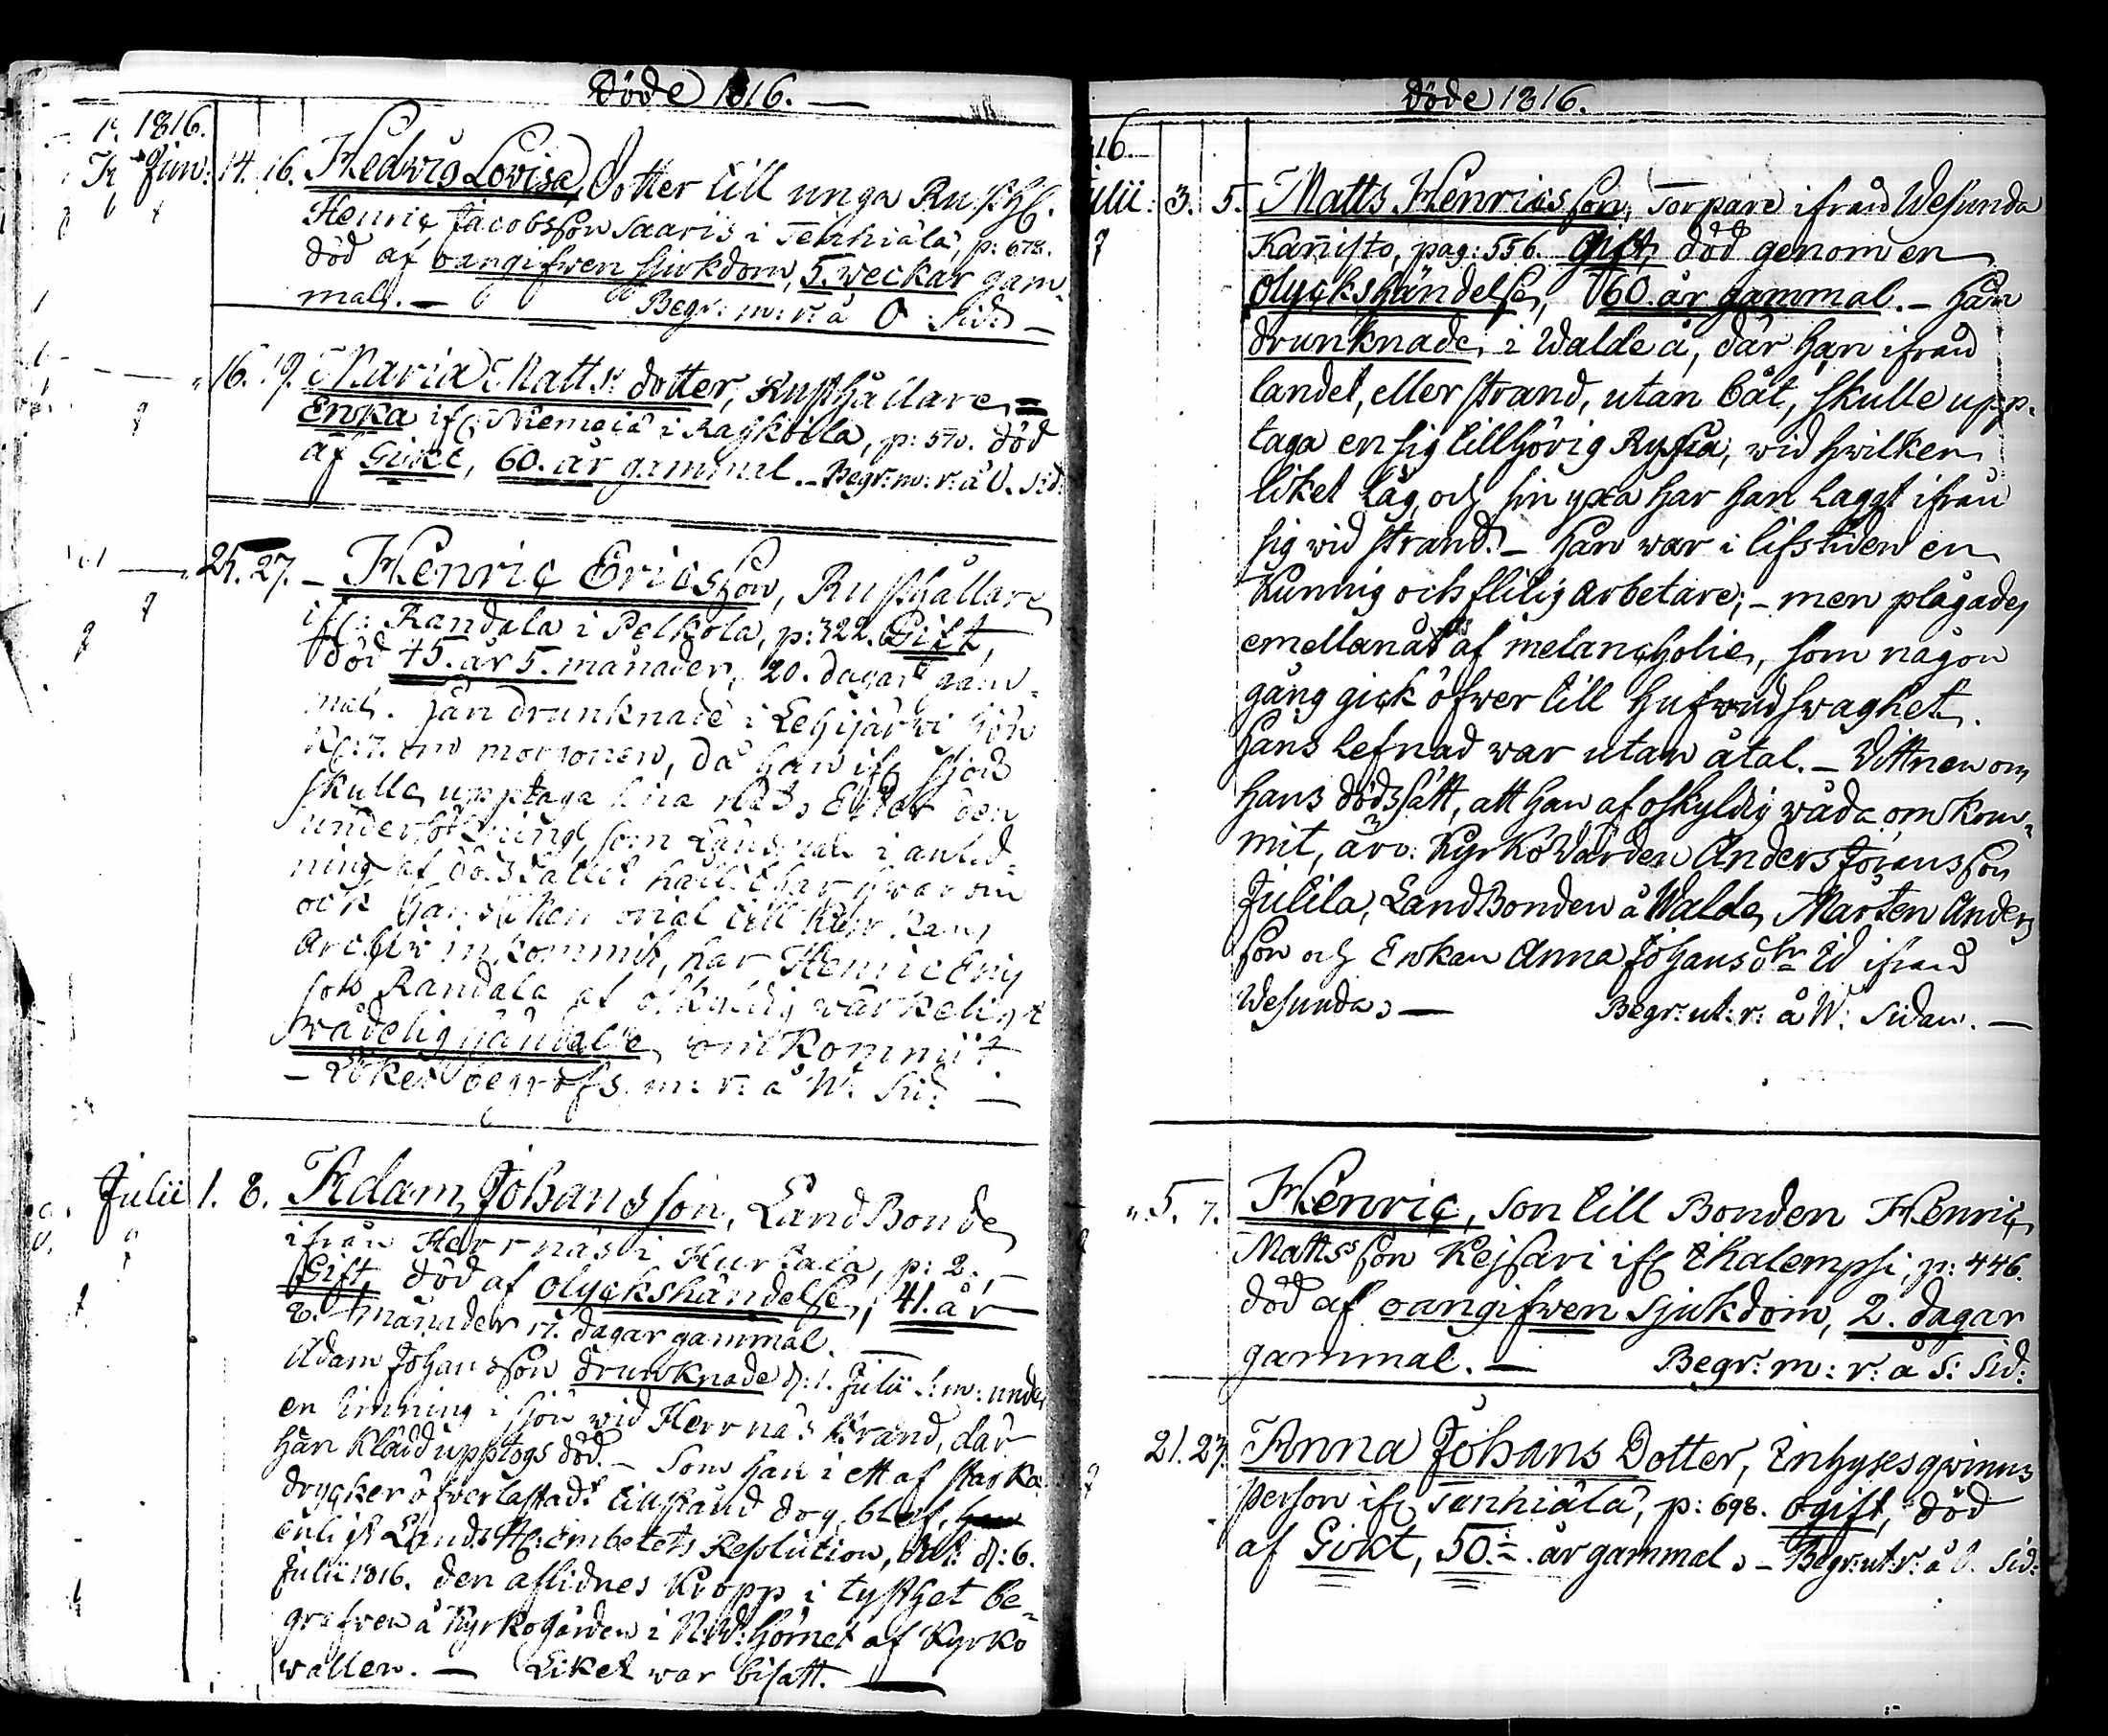 Döde 1816.
1816.
Jun: 14. 16. Hedwig Lovisa, Dotter till unga Rusth.
Henric Jacobsson Saaris i Tenhiälä, p: 678.
död af oangifwen sjukdom, 5. weckor gam-
mal. — Begr: m: r: å O: Sid: —
" 16. 19. Maria Matts dotter, Rusthållare =
Enka ifr: Niemelä i Raskoila, p: 570. död
af Gickt, 60. år gammal. — Begr: m: r: å O. Sid:
" 25. 27. — Henric Ericsson, Rusthållare
ifr: Randala i Pelkola, p: 322. Gift,
död 45. år 5. månader, 20. dagar gam-
mal. Han drunknade i Lehijärvi sjön
Kl: 7. om morgonen, då han ifr sjön
skulle upptaga sina nät. Efter den
undersökning, som Länsman i anled-
ning af dödsfallet hållit har hwarom
ock hans skan till Kyrkans
Archiv inkommit, har Henric Eric
sons Randala af oskyldig wärkeligt
wådelig händelse, omkommit.
— Liket begrofs. m: r: å W: Sid: —
Julii 1. 8. Adam Johansson, LandBonde
ifrån Herrnäs i Hurtala, p: 2. —
Gift, död af olyckshändelse, 41. år
8. månader 17. dagar gammal. —
Adam Johansson drunknade d: 1. Julii l: m: under
en simning i sjön wid Herrnäs strand, där
han klädd upptogs död. — Som han i ett af starka
drycker öfverlastadt tillstånd dog, blef,
enligt Lands H: Embetets Resolution, dat: d: 6.
Julii 1816. den aflidnes Kropp i tysthet be-
grafwen å Kyrkogården i N:W: hörnet af Kyrko
wallen. — Liket war bisatt. —
Döde 1816.
16.
ulii: 3. 5. Matts Henricsson, Torpare ifrån Wesunda
Kannisto, pag: 556. Gift, död genom en
olyckshändelse, 60. år gammal. — Han
drunknade i Walde å, där han ifrån
landet, eller strand, utan båt, skulle upp-
taga en sig tillhörig Ryssia, wid hwilken
liket låg, och sin yxa har han laggt ifrån
sig wid strand. — Han war i lifstiden en
Kunnig och flitig arbetare; — men plågades
emellanåt af melancholie, som någon
gång gick öfwer till hufwudswaghet.
Hans lefnad war utan åtal. — Wittnen om
hans dödssätt, att han af oskyldig wåda omkom-
mit, äro: KyrkoWärden Anders Jöransson
Julila, LandBonden å Walde, Mårten Anders
son och Enkan Anna Johans dtr Id ifrån
Wesunda. — Begr: ut: r: å W: Sidan. —
" 5. 7. Henric, Son till Bonden Henric
Mattsson Kejsari ifr Ihalempi, p: 446.
död af oangifwen sjukdom, 2. dagar
gammal. — Begr: m: r: å S: Sid:
21. 23. Anna Johans Dotter, Inhyses qwinns
person ifr Tenhiälä, p: 698. ogift, död
af Gickt, 50. år gammal. — Begr: ut: r: å O. Sid: